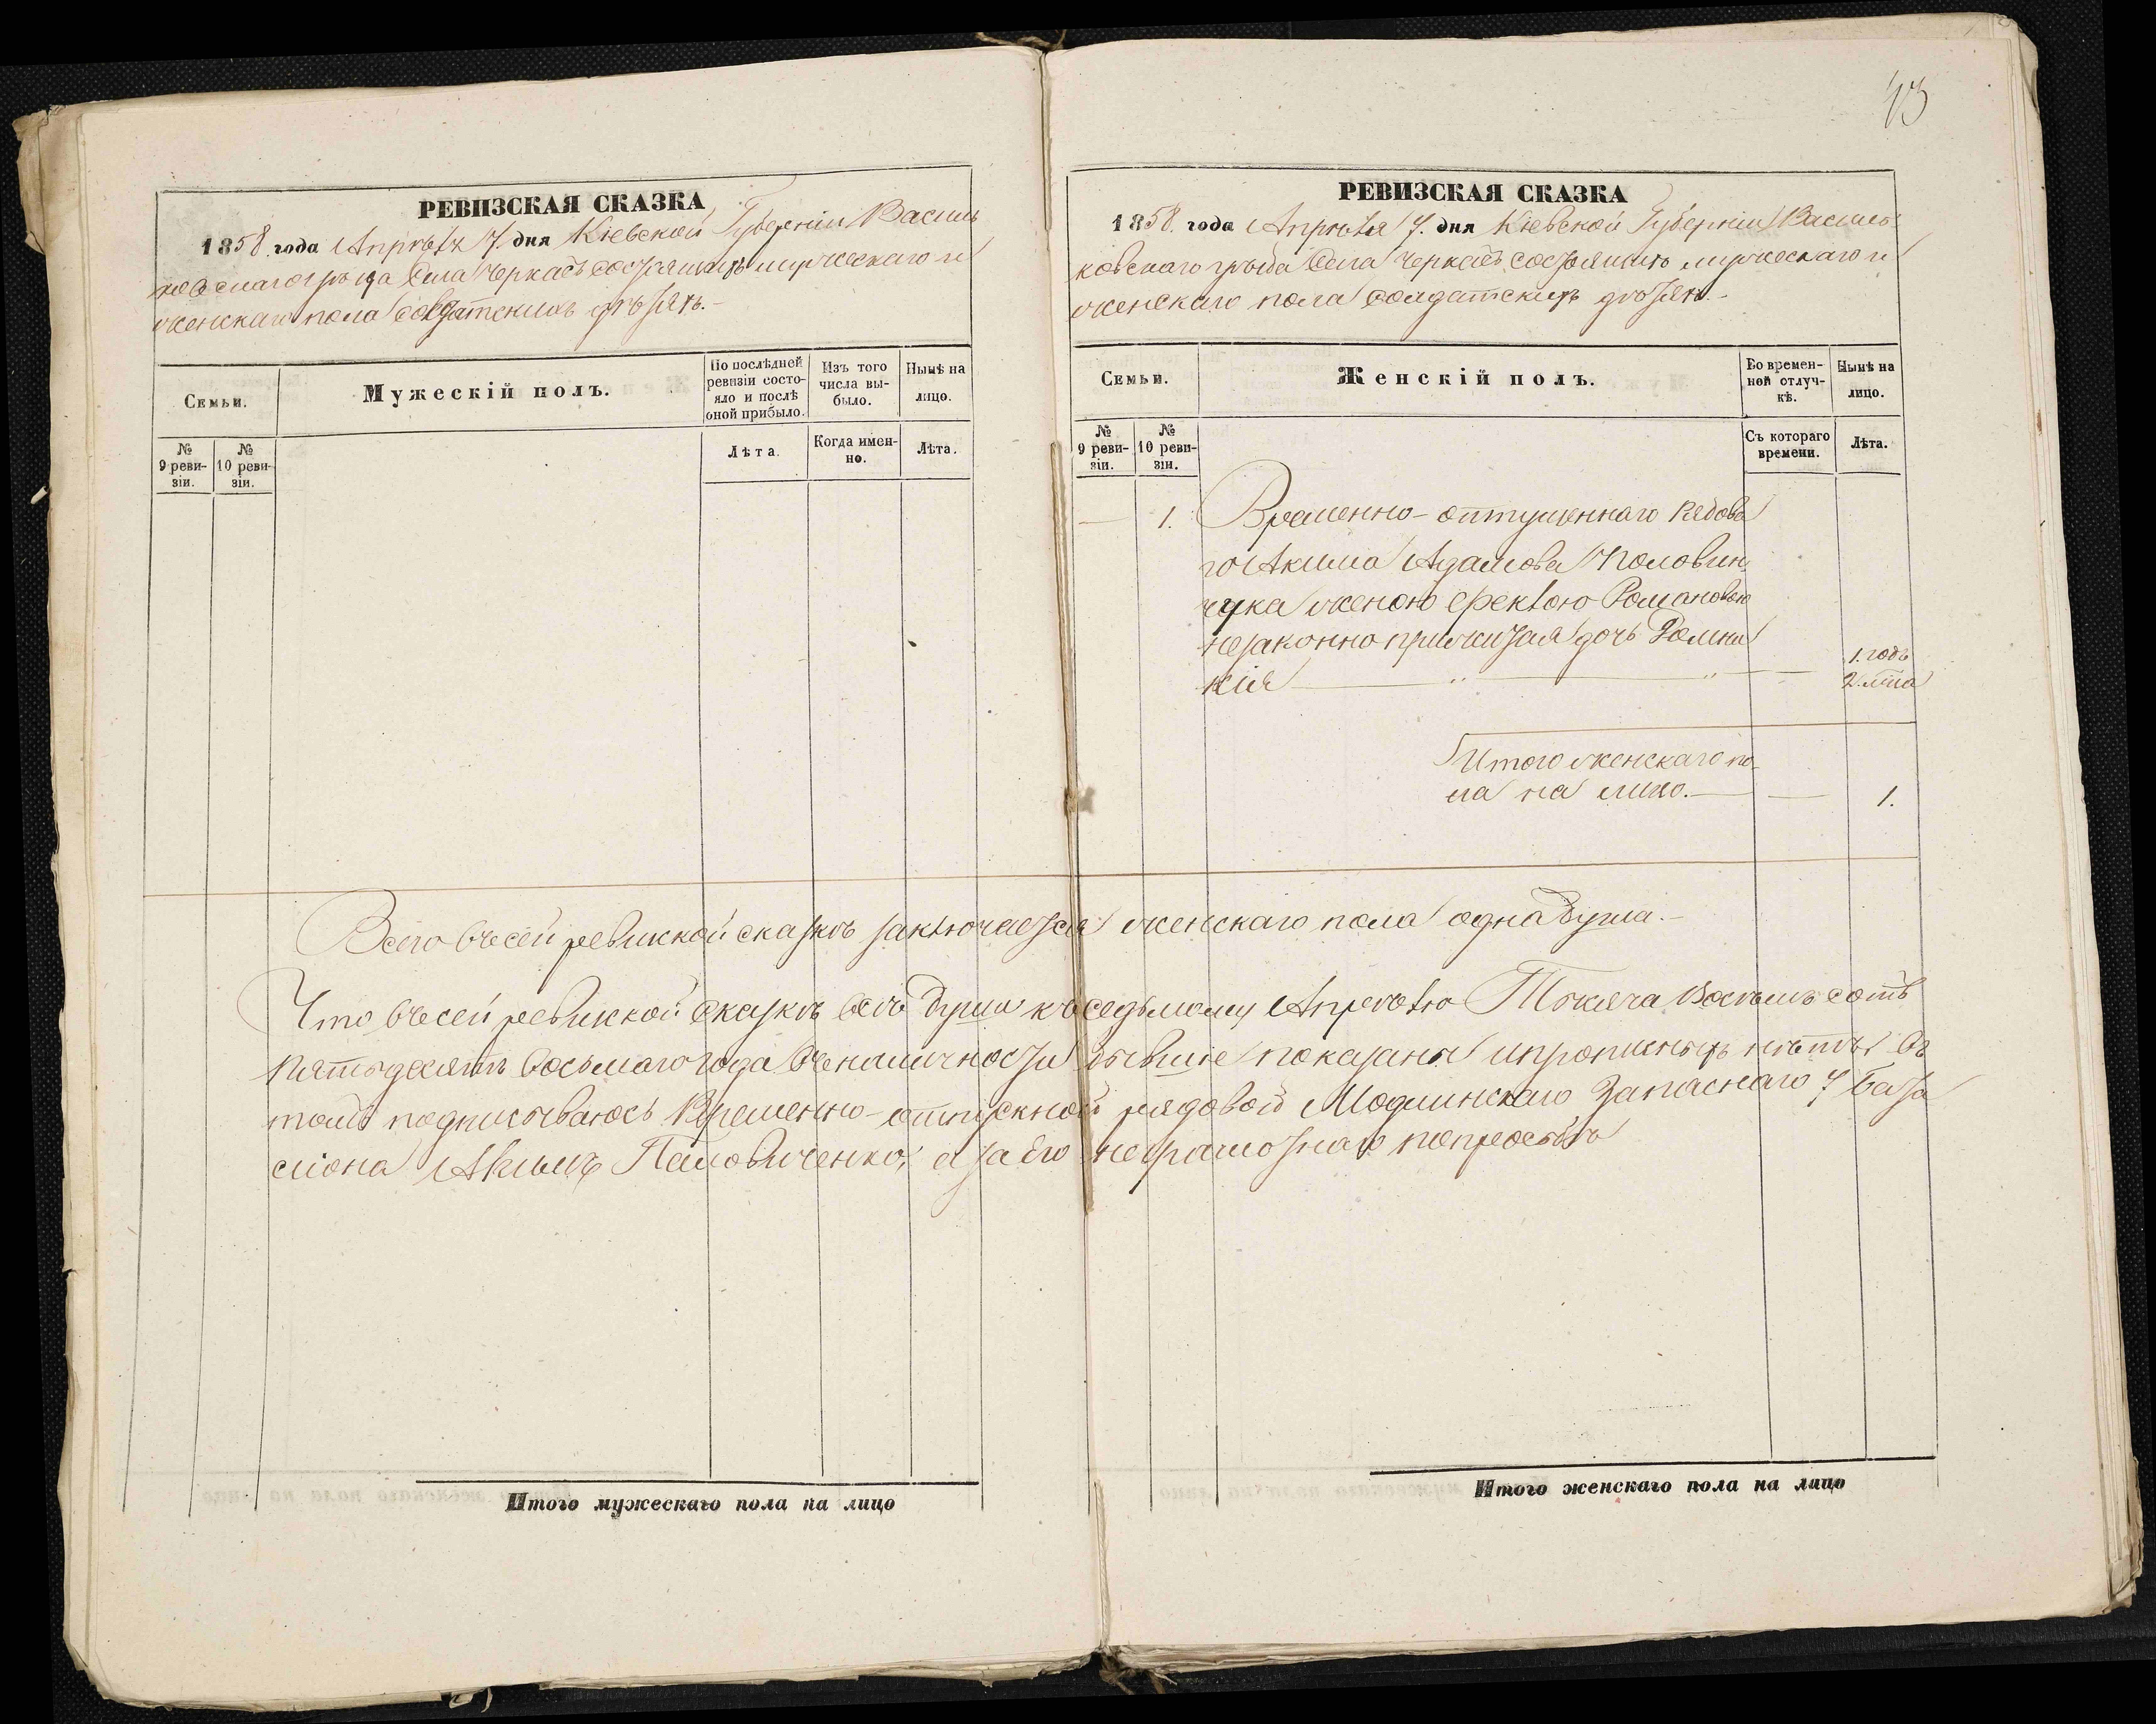 43
РЕВИЗСКАЯ СКАЗКА
1858. года Апрѣля 7. дня Кіевской Губерніи Василь
ковскаго уѣзда Села Черкасъ состоящихъ мужескаго и
женскаго пола Солдатскихъ дѣтяхъ.-
Семьи.
Мужескій полъ.
По послѣдней ревизіи состо-
яло и послѣ оной прибыло.
Изъ того числа вы-
было.
Нынѣ на лицо.
№ 9 реви-
зіи.
№ 10 реви-
зіи.
Лѣта.
Когда имен-
но.
Лѣта.
Итого мужескаго пола на лицо
РЕВИЗСКАЯ СКАЗКА
1858. года Апрѣля 7. дня Кіевской Губерніи Василь-
ковскаго уѣзда Села Черкасъ состоящихъ мужескаго и
женскаго пола Солдатскихъ дѣтяхъ.-
Семьи.
Женскій полъ.
Во времен-
ной отлуч-
кѣ.
Нынѣ на лицо.
№ 9 реви-
зіи.
№ 10 реви-
зіи.
Съ котораго времени.
Лѣта.
— 1. Временно-отпущеннаго Рядова
го Акима Адамова Половин
чука женою Феклою Романовою
незаконно прижитая дочь Домни
кія — " — " — 1. годъ
2. лѣта
Итого женскаго по-
ла на лицо. — — 1.
Всего въ сей ревизкой сказкѣ заключается женскаго пола одна душа.-
Что въ сей ревизкой сказкѣ всѣ души къ седьмому Апрѣлю Тысяча Восемь сотъ
пятьдесятъ восьмаго года въ наличности бывшіе показаны и прописныхъ нѣтъ въ
томъ подписываюсь Временно-отпускной рядовой Модлинскаго Запаснаго 7 Бата
ліона Акимъ Половиченко, а за его неграмотнаго по просьбѣ
Итого женскаго пола на лицо